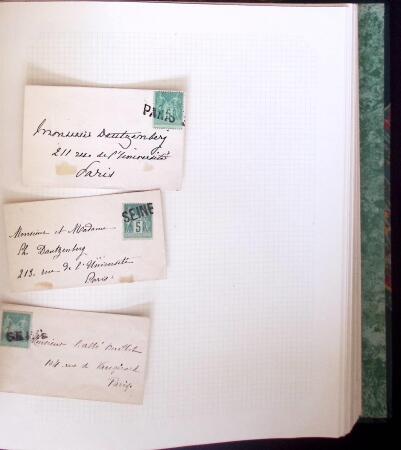 PARIS
Monsieur Dautzenberg
211 rue de l'Université
Paris
SEINE
5
Monsieur et Madame
Ph Dautzenberg
213, rue de l'Université
Paris.
SEINE
Monsieur l'abbé
104 rue de Vaugirard
Paris